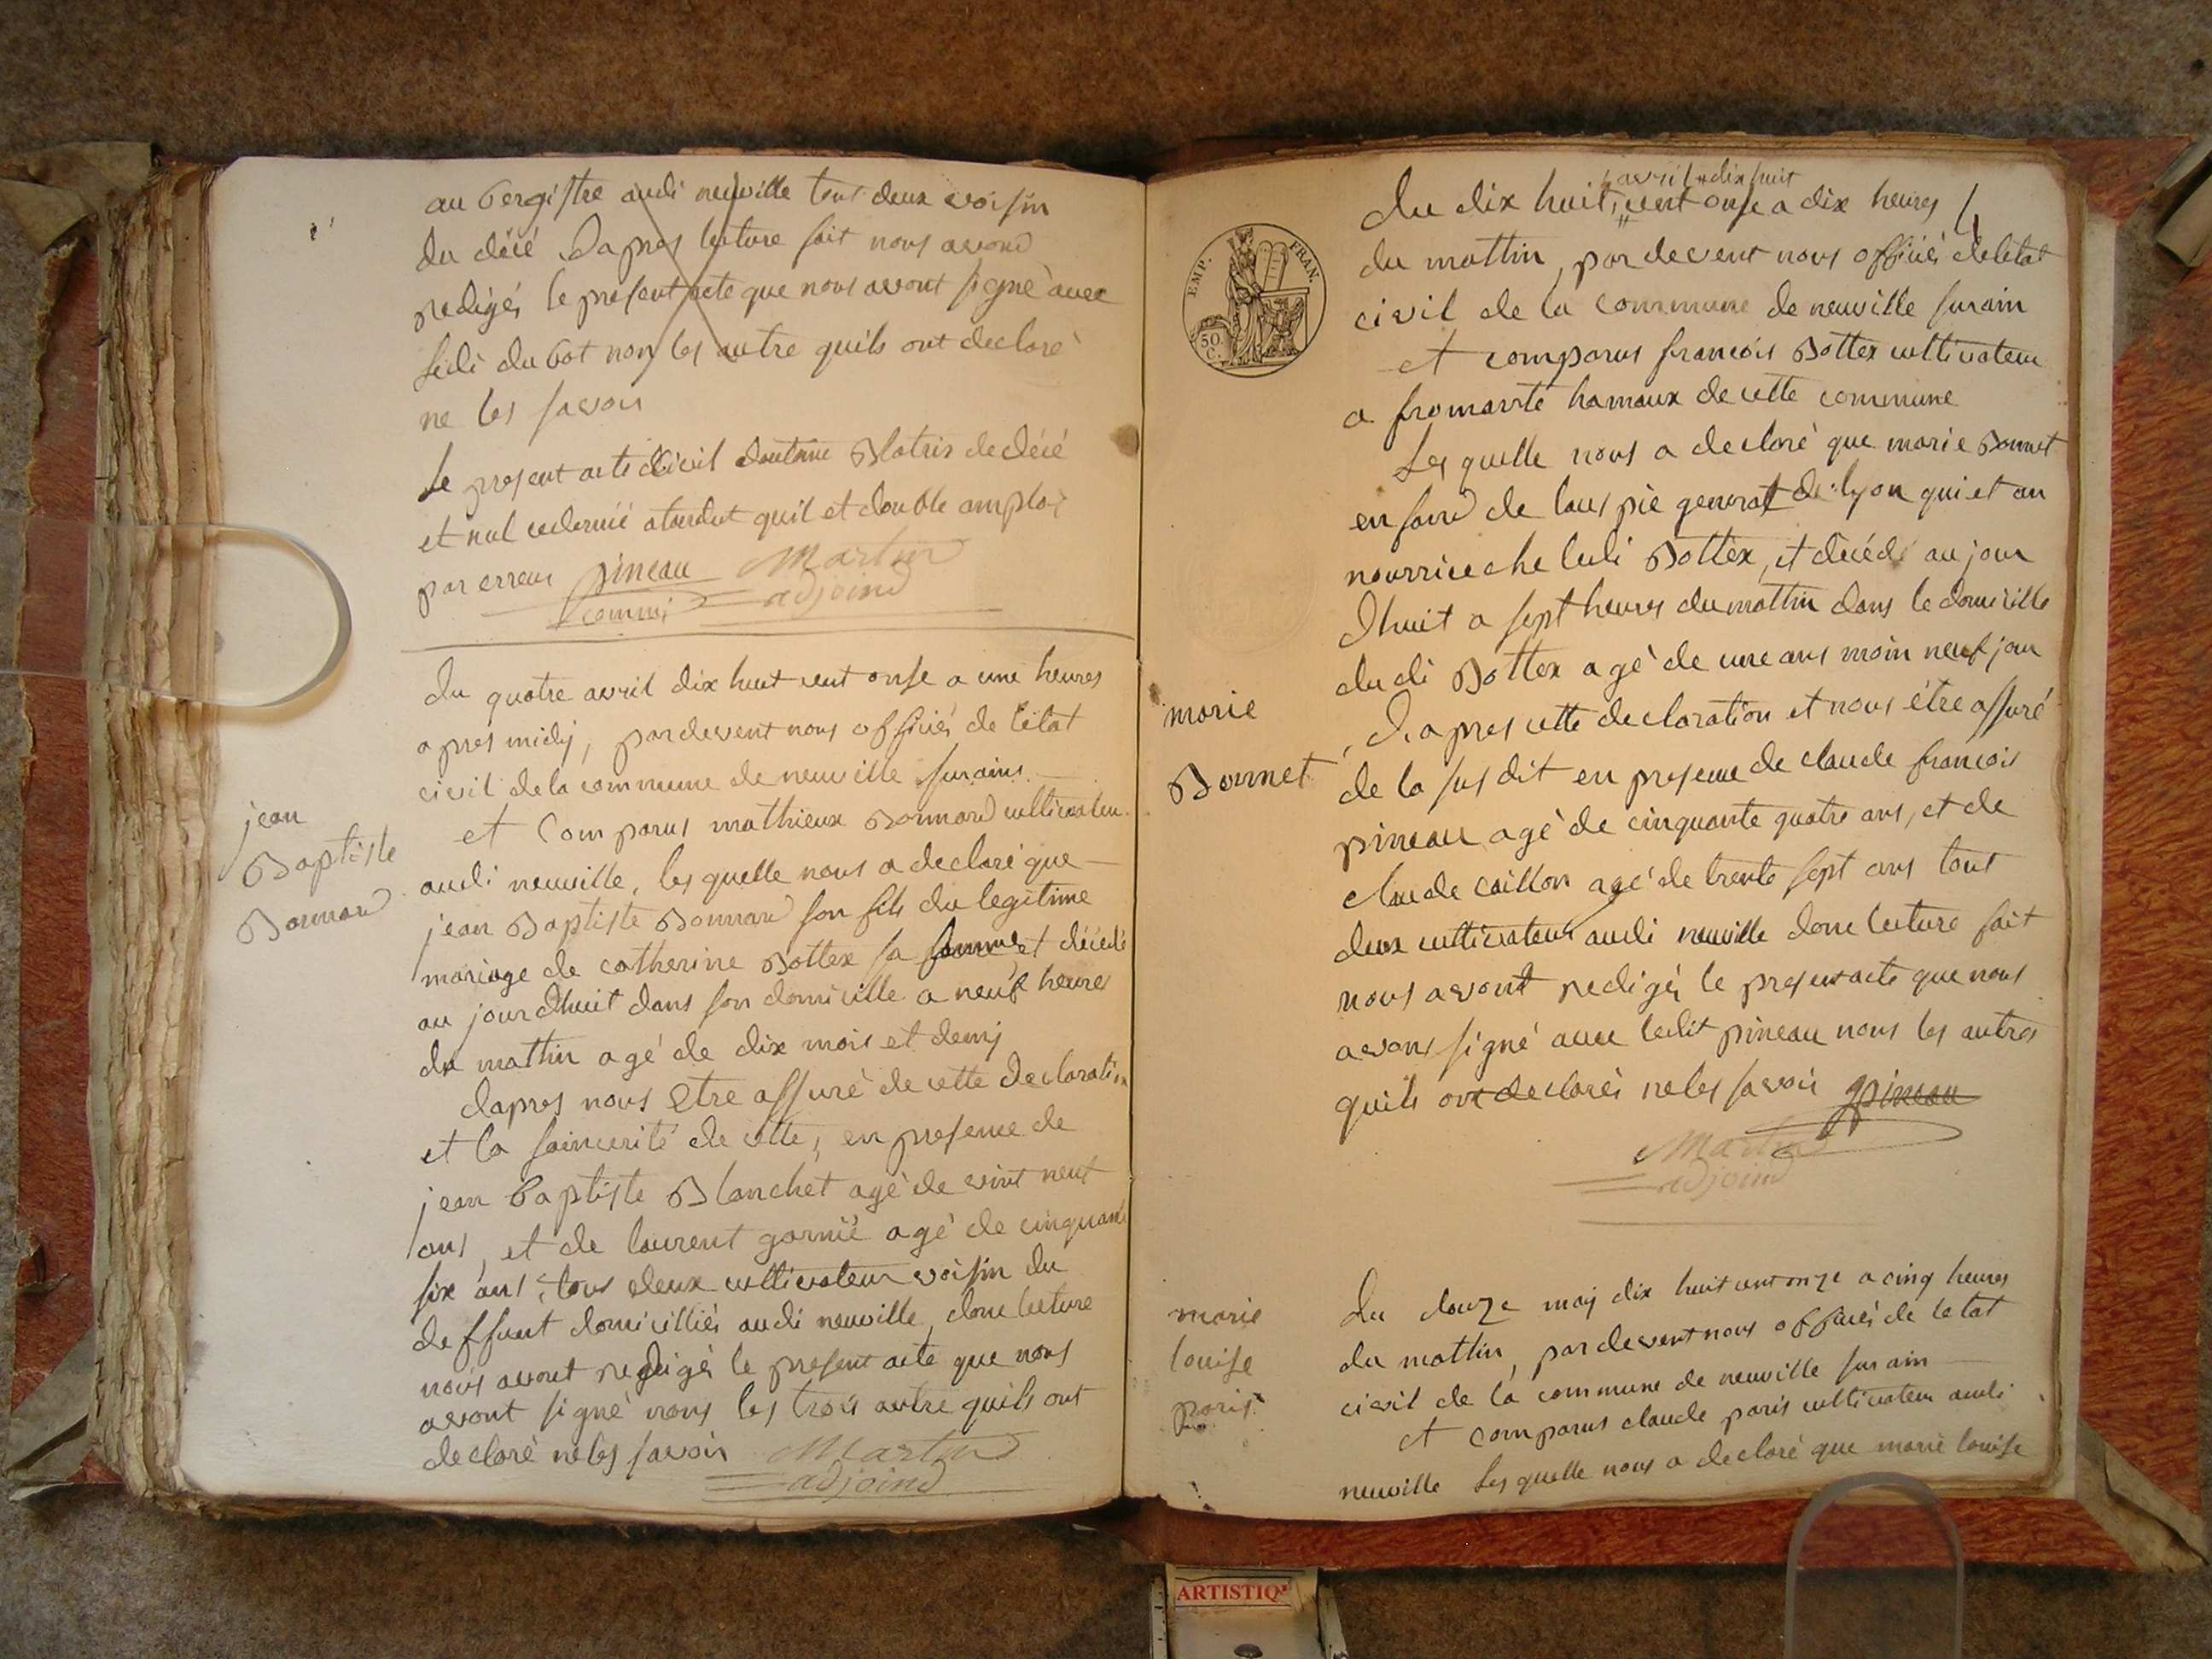 au bergistre audi neuville tout deux voisin
du décé. Dapres lecture fait nous avond
redigés le present acte que nous avont signé avec
ledi dubot non les autre quils ont declaré
ne les savoir
Le present acte de decé
et nul quil et double amploi
par erreur pineau Martin
commi adjoind
Du quatre avril dix huit cent onse a une heures
apres midy, pardevent nous officiés de l'etat
civil de la commune de neuville surains
jean
Baptiste
Bonnard
et Comparus mathieux Bonnard cultivateur
audi neuville, les quelle nous a declaré que
jean Baptiste Bonnard son fils du legitime
mariage de catherine Bottex sa famme et décédé
au jourdhuit dans son domicille a neuf heures
du mattin agé de dix mois et demy
dapres nous Etre assuré de cette declaration
et la saincerité de cette, en presence de
jean baptiste Blanchet agé de vint neuf
ans, et de laurent garnié agé de cinquante
six ans, tous deux cultivateur voisin du
deffunt domicilliés audi neuville, donc lecture
nous avont redigés le present acte que nous
avont signé nons les trois autre quils ont
declaré neles savoir Martin
adjoind
avril dix huit
Du dix huit, cent onse a dix heures 4
du mattin, pardevent nous officiés deletat
civil de la commune de neuville surain
EMP. FRAN.
50 C.
et comparus francois Bottex cultivateur
a fromante hamaux de cette commune
Les quelle nous a declaré que marie Bonnet
enfand de laus pie general de lyon qui et an
nourrice che ledi Bottex, et décédé au jour
Dhuit a sept heures dumattin dans le domicille
dudi Bottex agé de une ans moin neuf jour
marie
Bonnet
Dapres cette declaration et nous étre assuré
de la sus dit en presence de claude francois
pineau agé de cinquante quatre ans, et de
claude caillon agé de trente sept ans tout
deux cultivateur audi neuville donc lecture fait
nous avont redigés le present acte que nous
avons signé avec ledit pineau nons les autres
quils ont declarés neles savoir pineau
Martin
adjoind
marie
louise
paris
Du douze may dix huit cent onze a cinq heures
du mattin, pardevent nous officiés de letat
civil de la commune de neuville sur ain
et comparus claude paris cultivateur audi
neuville Les quelle nous a declaré que marie louise
ARTISTIQ